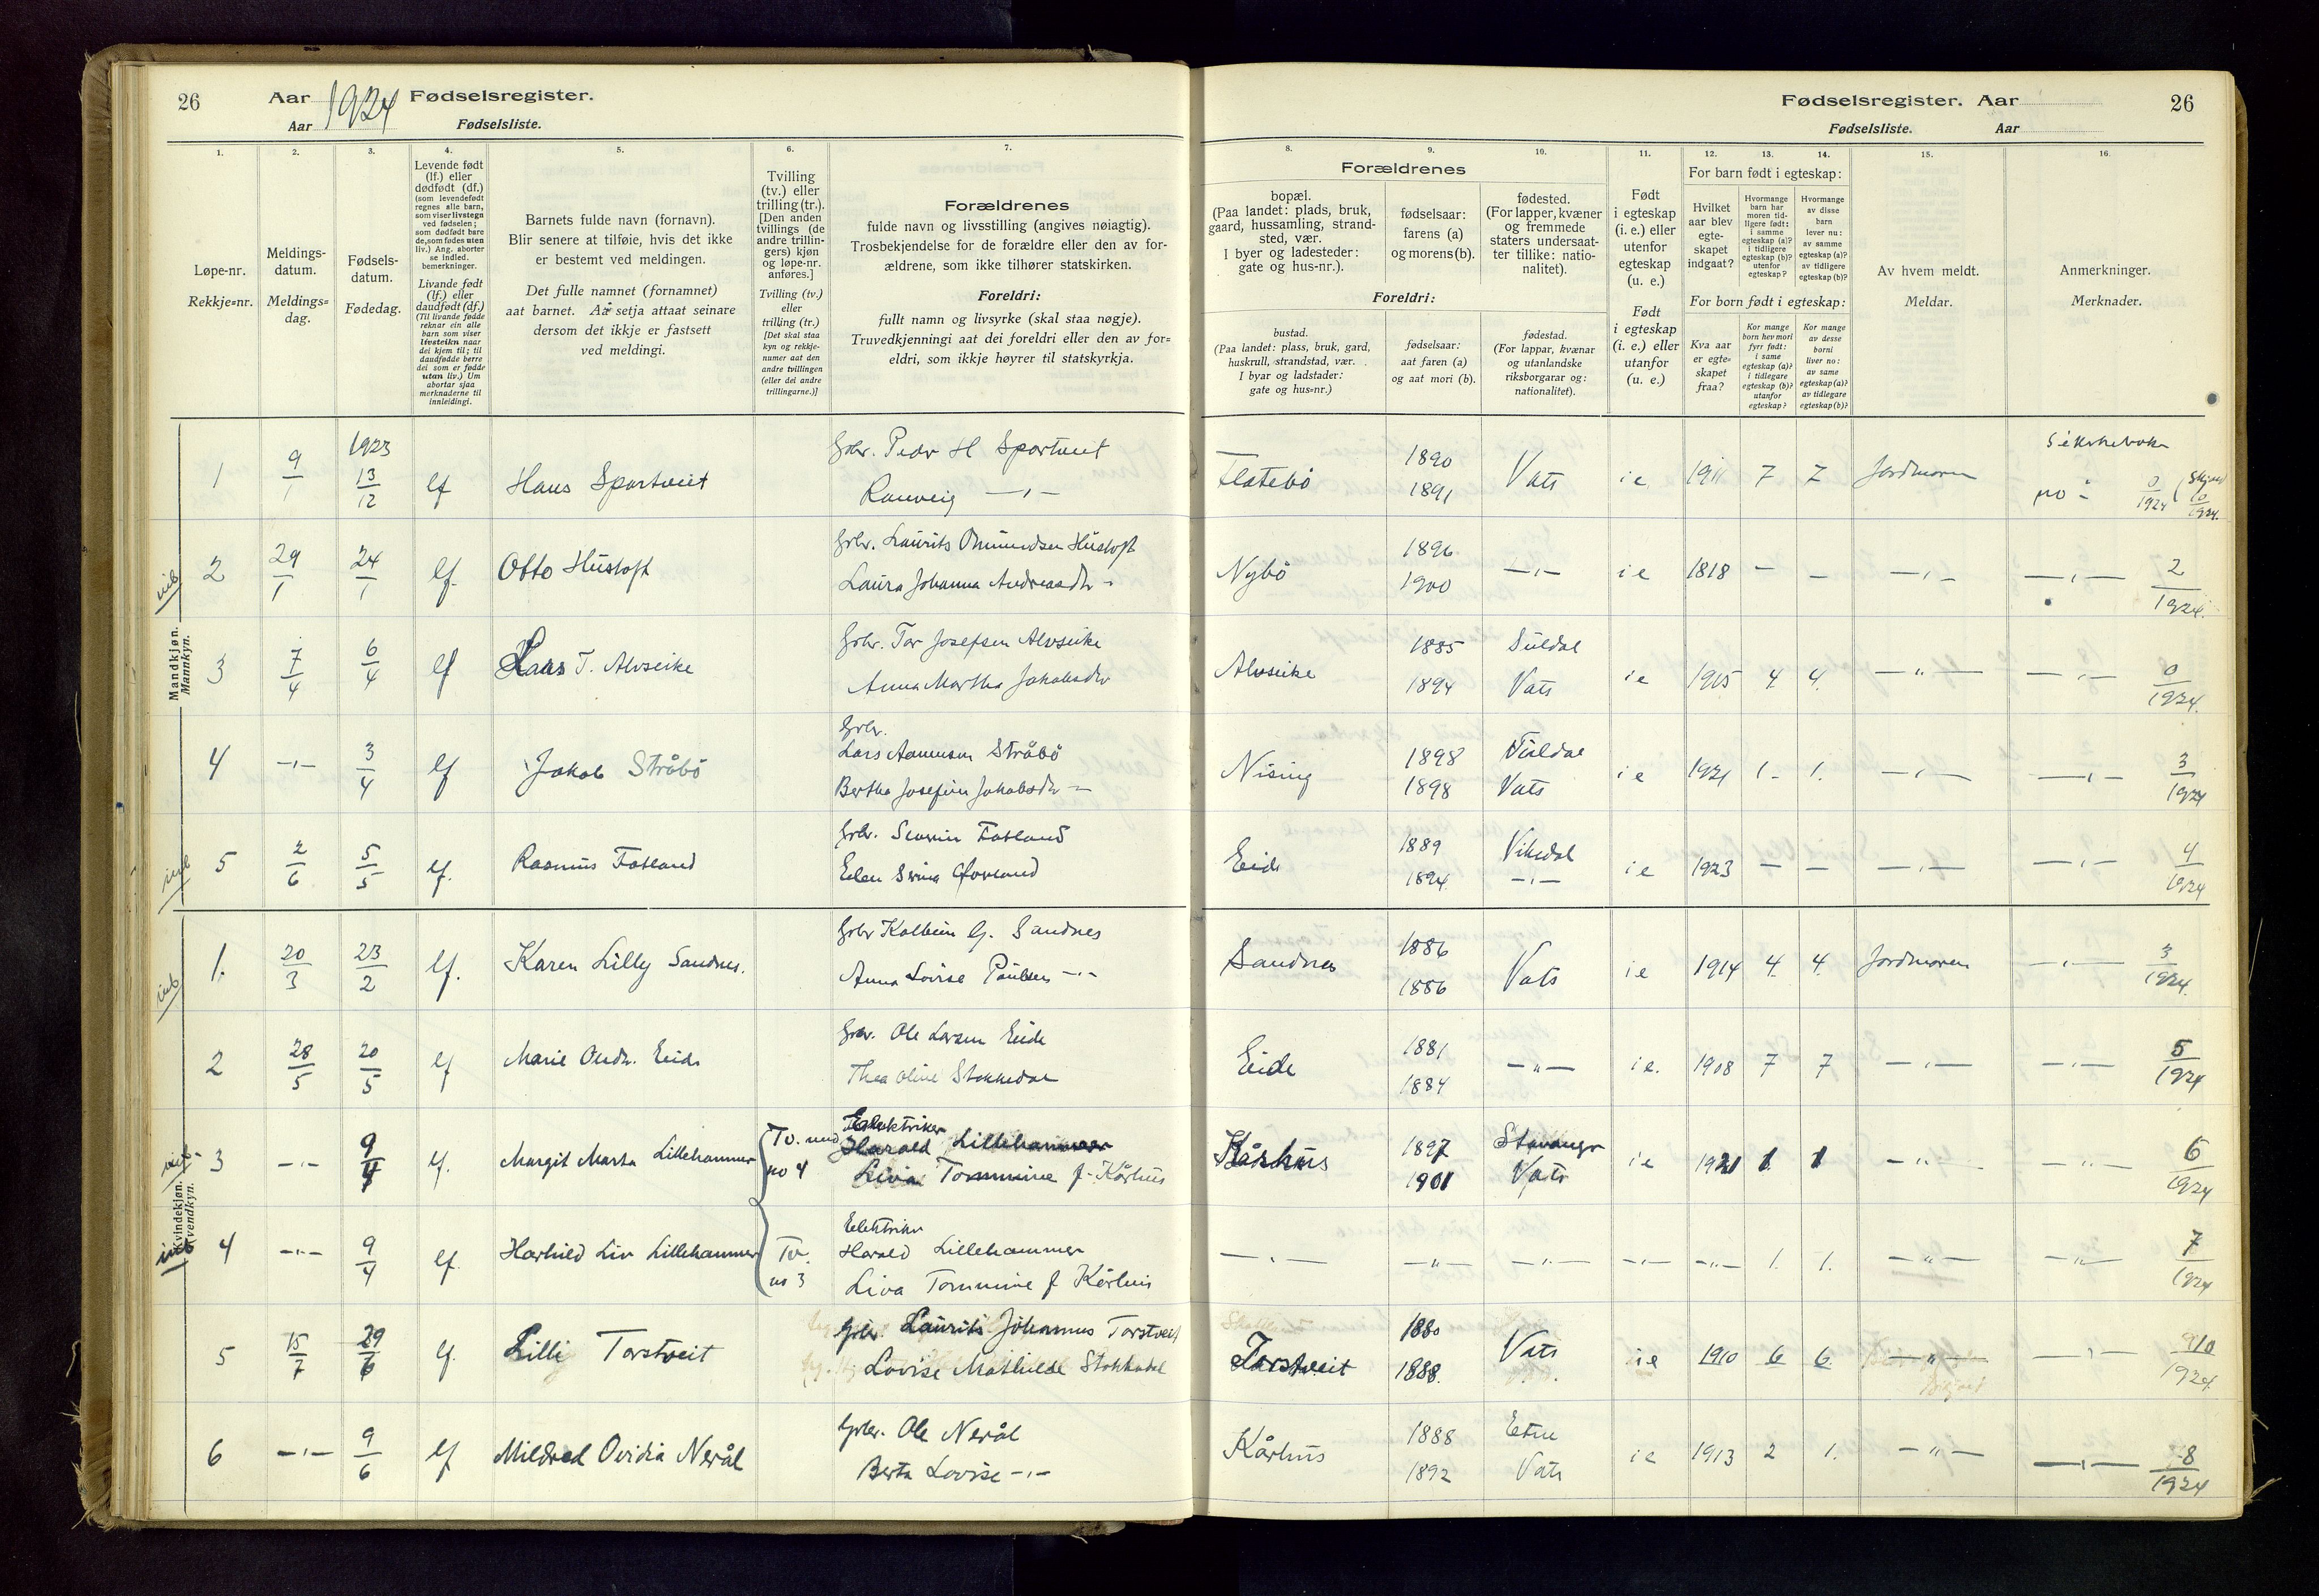 26 Aar 1924 Fødselsregister.
Aar Fødselsliste.
Fødselsregister. Aar 26
Fødselsliste. Aar
1. 2. 3. 4. 5. 6. 7. 8. 9. 10. 11. 12. 13. 14. 15. 16.
Løpe-nr.
Rekkje=nr.
Meldings-
datum.
Meldings=
dag.
Fødsels-
datum.
Fødedag.
Levende født
(lf.) eller
dødfødt (df.)
(som levendefødt
regnes alle barn,
som viser livstegn
ved fødselen;
som dødfødt bare
de, som fødes uten
liv.) Ang. aborter
se indled.
bemerkninger.
Livande født
(lf.) eller
daudfødt (df.)
(Til livande fødde
reknar ein alle
barn som viser
livsteikn naar
dei kjem til; til
daudfødde berre
dei som er fødde
utan liv.) Um
abortar sjaa
merknaderne til
innleidingi.
Barnets fulde navn (fornavn).
Blir senere at tilføie, hvis det ikke
er bestemt ved meldingen.
Det fulle namnet (fornamnet)
aat barnet. Aa setja attaat seinare
dersom det ikkje er fastsett
ved meldingi.
Tvilling
(tv.) eller
trilling (tr.).
[Den anden
tvillings (de
andre trillin-
gers) kjøn
og løpe-nr.
anføres.]
Tvilling (tv.)
eller
trilling (tr.)
[Det skal staa
kyn og rekkje-
numer aat den
andre tvillingen
(eller dei andre
trillingarne.)]
Forældrenes
fulde navn og livsstilling (angives nøiagtig).
Trosbekjendelse for de forældre eller den av for-
ældrene, som ikke tilhører statskirken.
Foreldri:
fullt namn og livsyrke (skal staa nøgje).
Truvedkjenningi aat dei foreldri eller den av for=
eldri, som ikkje høyrer til statskyrkja.
Forældrenes
bopæl.
(Paa landet: plads, bruk,
gaard, hussamling, strand-
sted, vær.
I byer og ladesteder:
gate og hus-nr.).
fødselsaar:
farens (a)
og morens (b).
fødested.
(For lapper, kvæner
og fremmede
staters undersaat-
ter tillike: natio-
nalitet).
Foreldri:
bustad.
(Paa landet: plass, bruk, gard,
huskrull, strandstad, vær.
I byar og ladstader:
gate og hus=nr.)
fødselsaar:
aat faren (a)
og aat mori (b).
fødestad.
(For lappar, kvænar
og utanlandske
riksborgarar og:
nationalitet).
Født
i egteskap
(i. e.) eller
utenfor
egteskap
(u. e.)
Født
i egteskap
(i. e.) eller
utanfor
(u. e.)
For barn født i egteskap:
Hvilket
aar blev
egte-
skapet
indgaat?
Hvormange
barn har
moren tid-
ligere født:
i samme
egteskap (a)?
i tidligere
egteskap (b)?
utenfor
egteskap?
Hvormange
av disse
barn
lever nu:
av samme
egteskap (a)?
av tidligere
egteskap (b)?
For born født i egteskap:
Kva aar
er egte=
skapet
fraa?
Kor mange
born hev mori
fyrr født:
i same
egteskap (a)?
i tidlegare
egteskap (b)?
utanfor
egteskap?
Kor mange
av desse
borni
liver no:
av same
egteskap (a)?
av tidlegare
egteskap (b)?
Av hvem meldt.
Meldar.
Anmerkninger.
Merknader.
Mankjøn.
Mannkyn.
1 9/1 1923 13/12 lf Hans Sportveit Gbr. Peder H Sportveit
Ranveig —"— Flatebö 1890 1891 Vats i e 1911 7 7 Jordmoren no 0/1924
2 29/1 24/1 lf. Otto Hustoft Gbr. Laurits Omundsen Hustoft
Laura Johanna Andreasdtr — Nybö 1896 1900 —"— i e 1818 — — —"— —"— 2/1924
3 7/4 6/4 lf Lars T. Alvseike Gbr. Tor Josefsen Alvseike
Anna Martha Jakobsdtr Alvseike 1885 1894 Suldal Vats i e 1915 4 4. —"— —"— 0/1924.
4 —"— 3/4 lf Jakob Stråbö Gbr.
Lars Aamunsen Stråbö
Bertha Josefine Jakobsdtr — Nising 1898 1898 Suldal Vats i e 1921 1. 1. —"— —"— 3/1924
5 2/6 5/5 lf. Rasmus Fatland Gbr. Severin Fatland
Elen Serina Øverland Eide 1889 1894 Vikedal —"— i e 1923 — — —"— —"— 4/1924
1. 20/3 23/2 lf. Karen Lilly Sandnes. Gbr Kolbein G. Sandnes
Anna Lovise Paulsen —"— Sandnes 1886 1886 Vats i e 1914 4. 4. Jordmoren —"— 3/1924.
2 28/5 20/5 lf Marie Eide Gbr. Ole Larsen Eide
Thea Oline Stokkedal Eide 1881 1884 —"— i e. 1908 7 7 —"— —"— 5/1924
Kvindekjøn.
Kvendkyn.
3 —"— 9/4 lf. Margit Marta Lillehammer Tv. med no 4 Elektriker
Harald Lillehammer
Liva Tommine f. Kårhus Kårhus 1897 1901 Stavanger Vats i e 1921 1 1 —"— —"— 6/1924
4 —"— 9/4 lf. Harhild Liv Lillehammer Tv. no 3 Elektriker
Harald Lillehammer
Liva Tommine f Kårhus —"— —"— —"— —"— —"— 1. 1. —"— —"— 7/1924
5 15/7 29/6 lf. Lilli Torstveit Gbr. Laurits Johannes Torstveit
Lovise Mathilde Stokkedal Torstveit 1880 1888. Vats i e 1910 6 6. —"— —"— 10/1924.
6 —"— 9/6 lf Mildred Ovidia Nerål Gbr. Ole Nerål
Berta Lovise —"— Kårhus 1888 1892 Etne Vats i e 1913 2 1. —"— —"— 8/1924